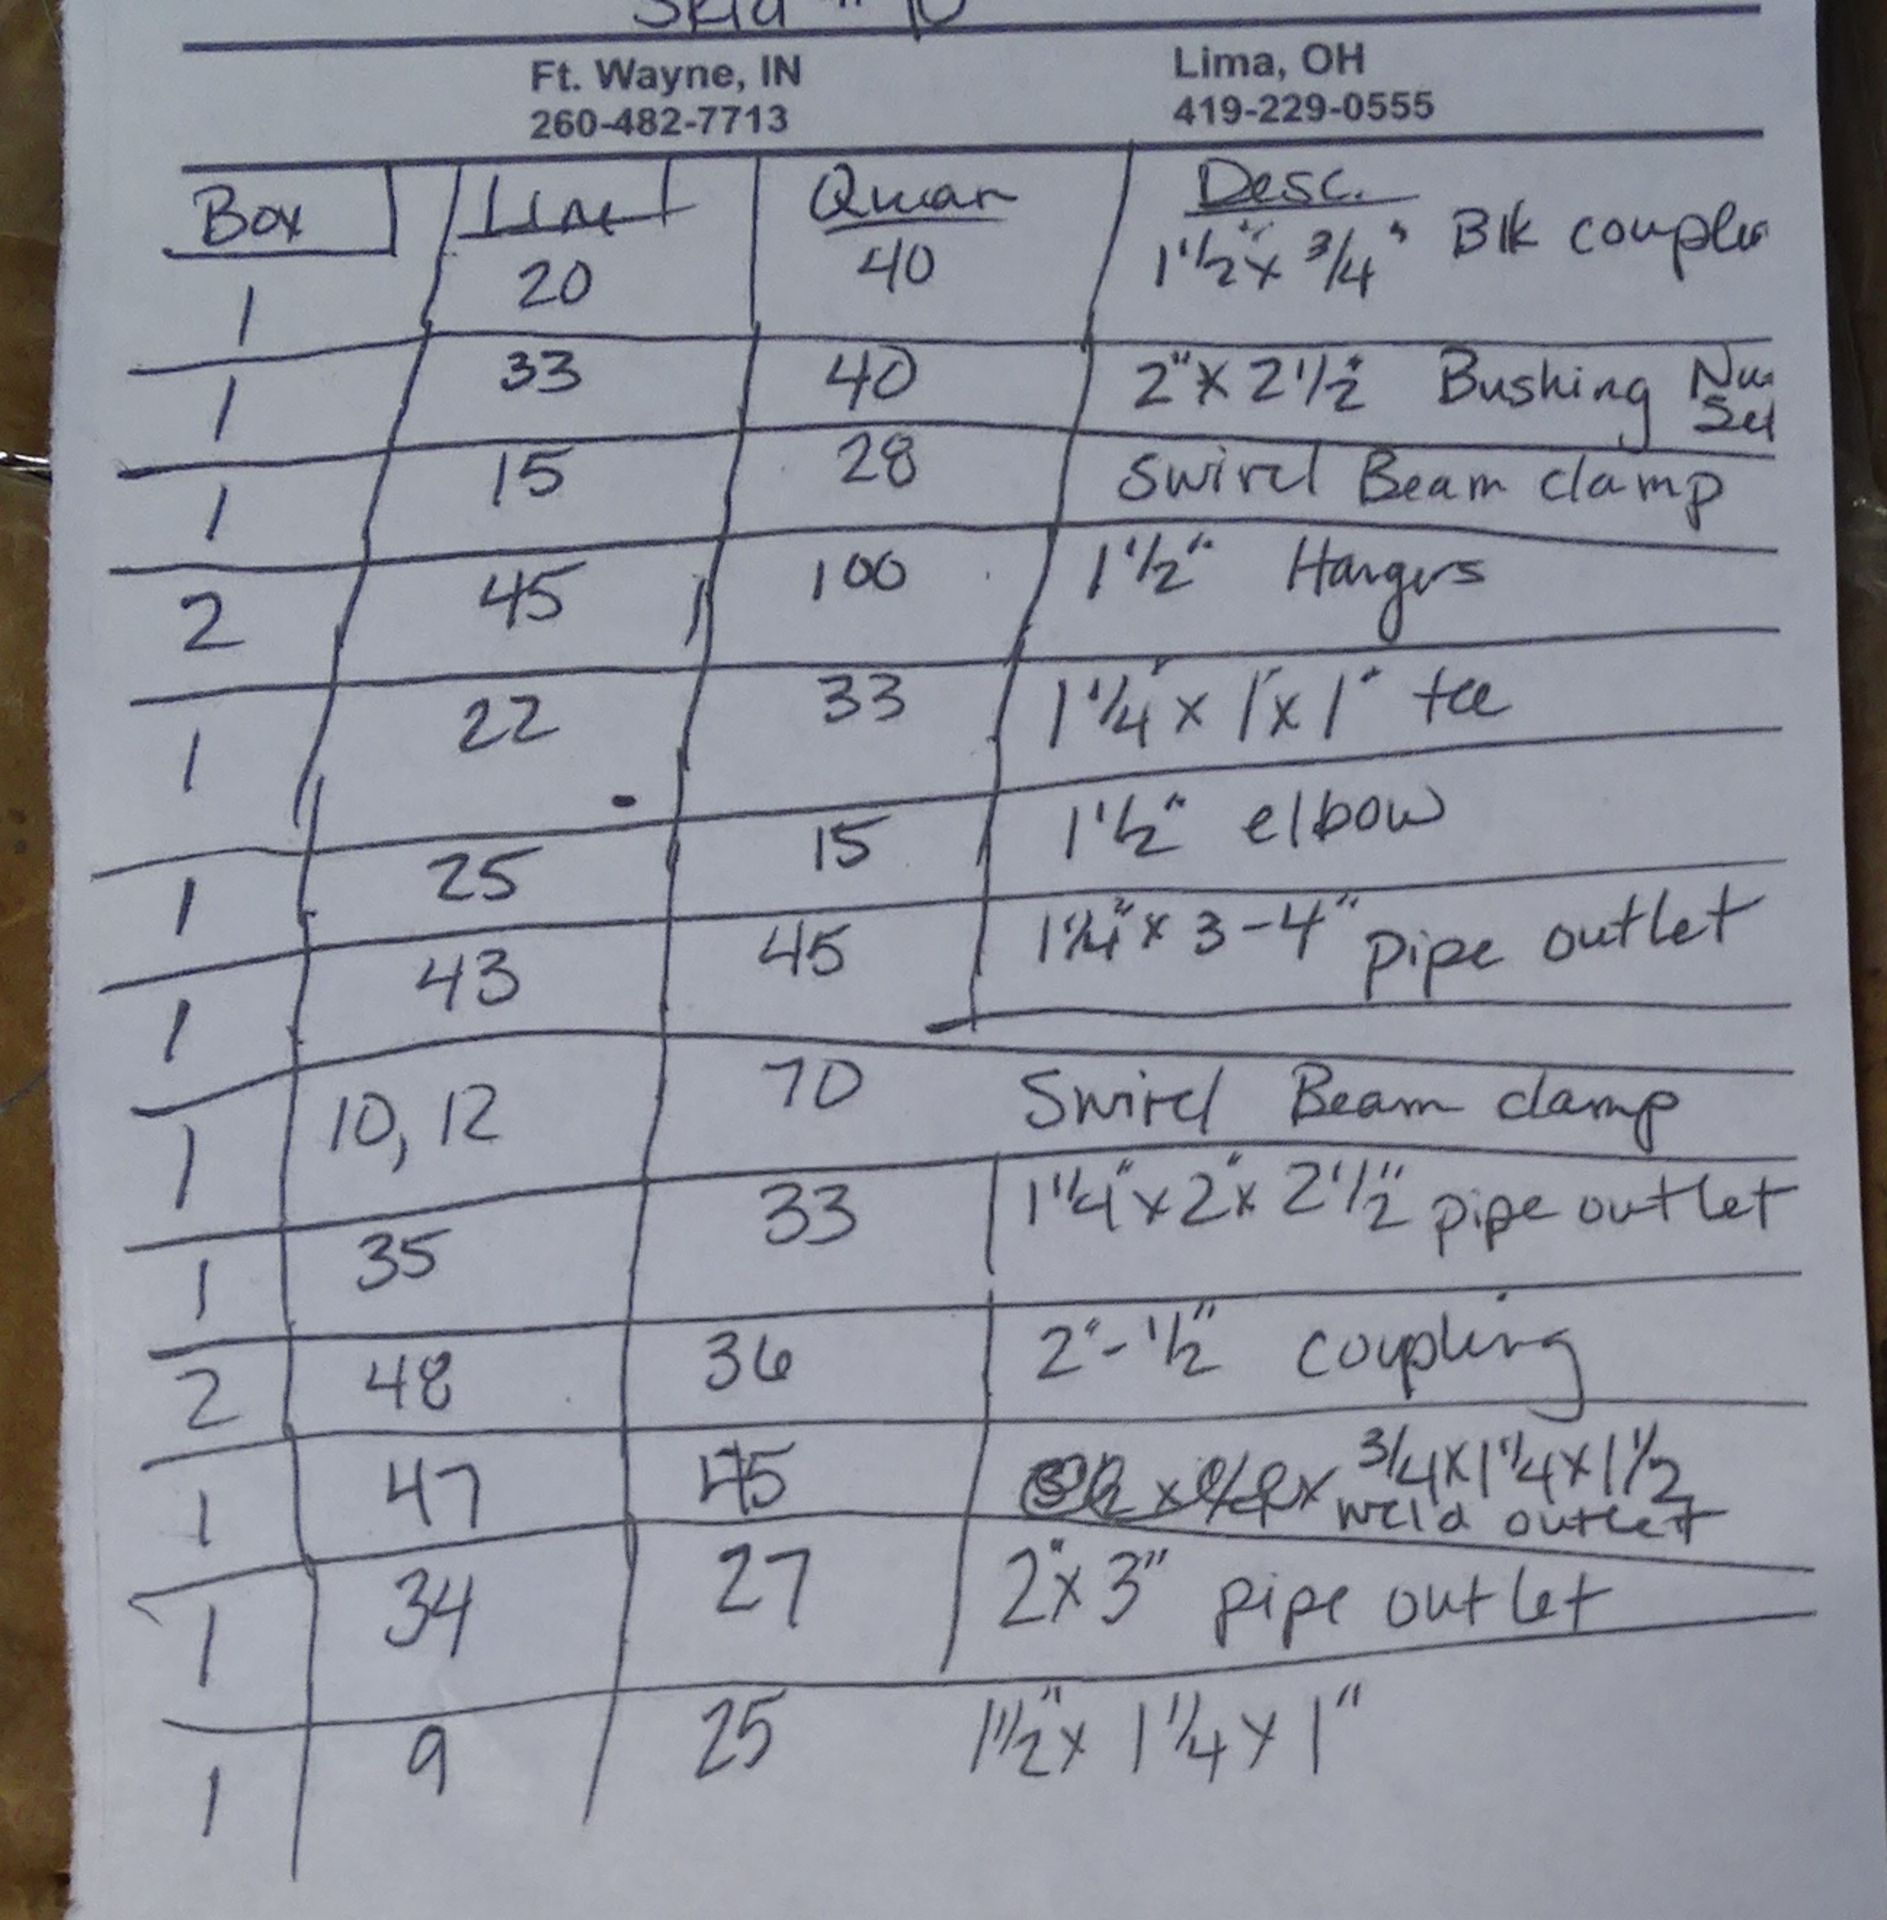 Skid #
Ft. Wayne, IN Lima, OH
260-482-7713 419-229-0555
Box Line Quan Desc.
1 20 40 1 1/2" x 3/4" Blk coupler
1 33 40 2" x 2 1/2" Bushing
1 15 28 Swivel Beam clamp
2 45 100 1 1/2" Hangers
1 22 33 1 1/4" x 1" x 1" tee
1 25 15 1 1/2" elbow
1 43 45 1 1/4" x 3-4" pipe outlet
1 10, 12 70 Swivel Beam clamp
1 35 33 1 1/4" x 2" x 2 1/2" pipe outlet
2 48 36 2"-1/2" coupling
1 47 45 3/4 x 1 1/4 x 1 1/2
weld outlet
1 34 27 2" x 3" pipe outlet
1 9 25 1 1/2" x 1 1/4 x 1"